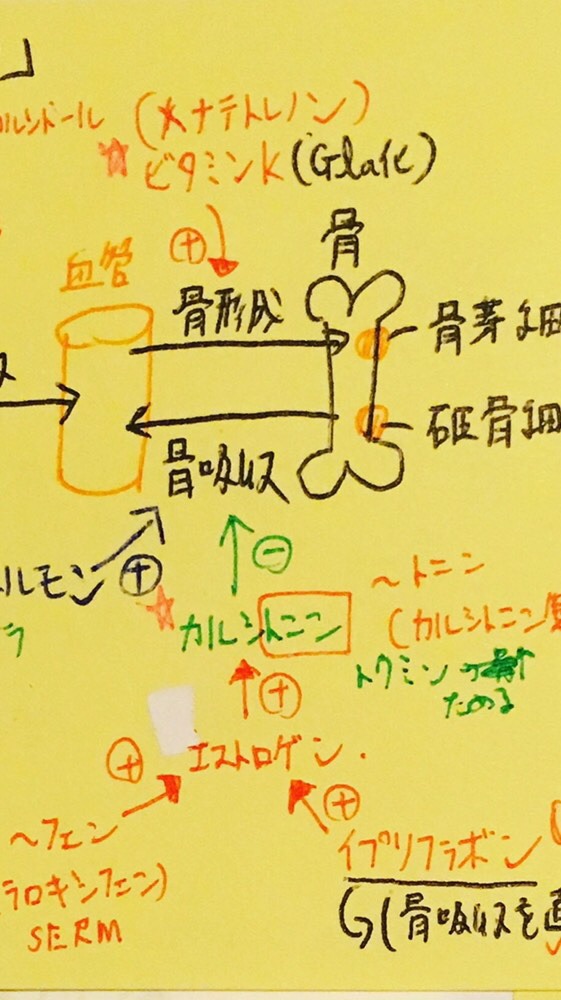 」
カルシドール (メナテトレノン)
ビタミンK (Gla化)
⊕
血管
骨
骨形成
骨芽細
破骨細
骨吸収
⊕
⊖
ルモン
カルシトニン
〜トニン
(カルシトニン
⊕
⊕
エストロゲン.
⊕
〜フェン
ラロキシフェン)
SERM
イプリフラボン
(骨吸収を直